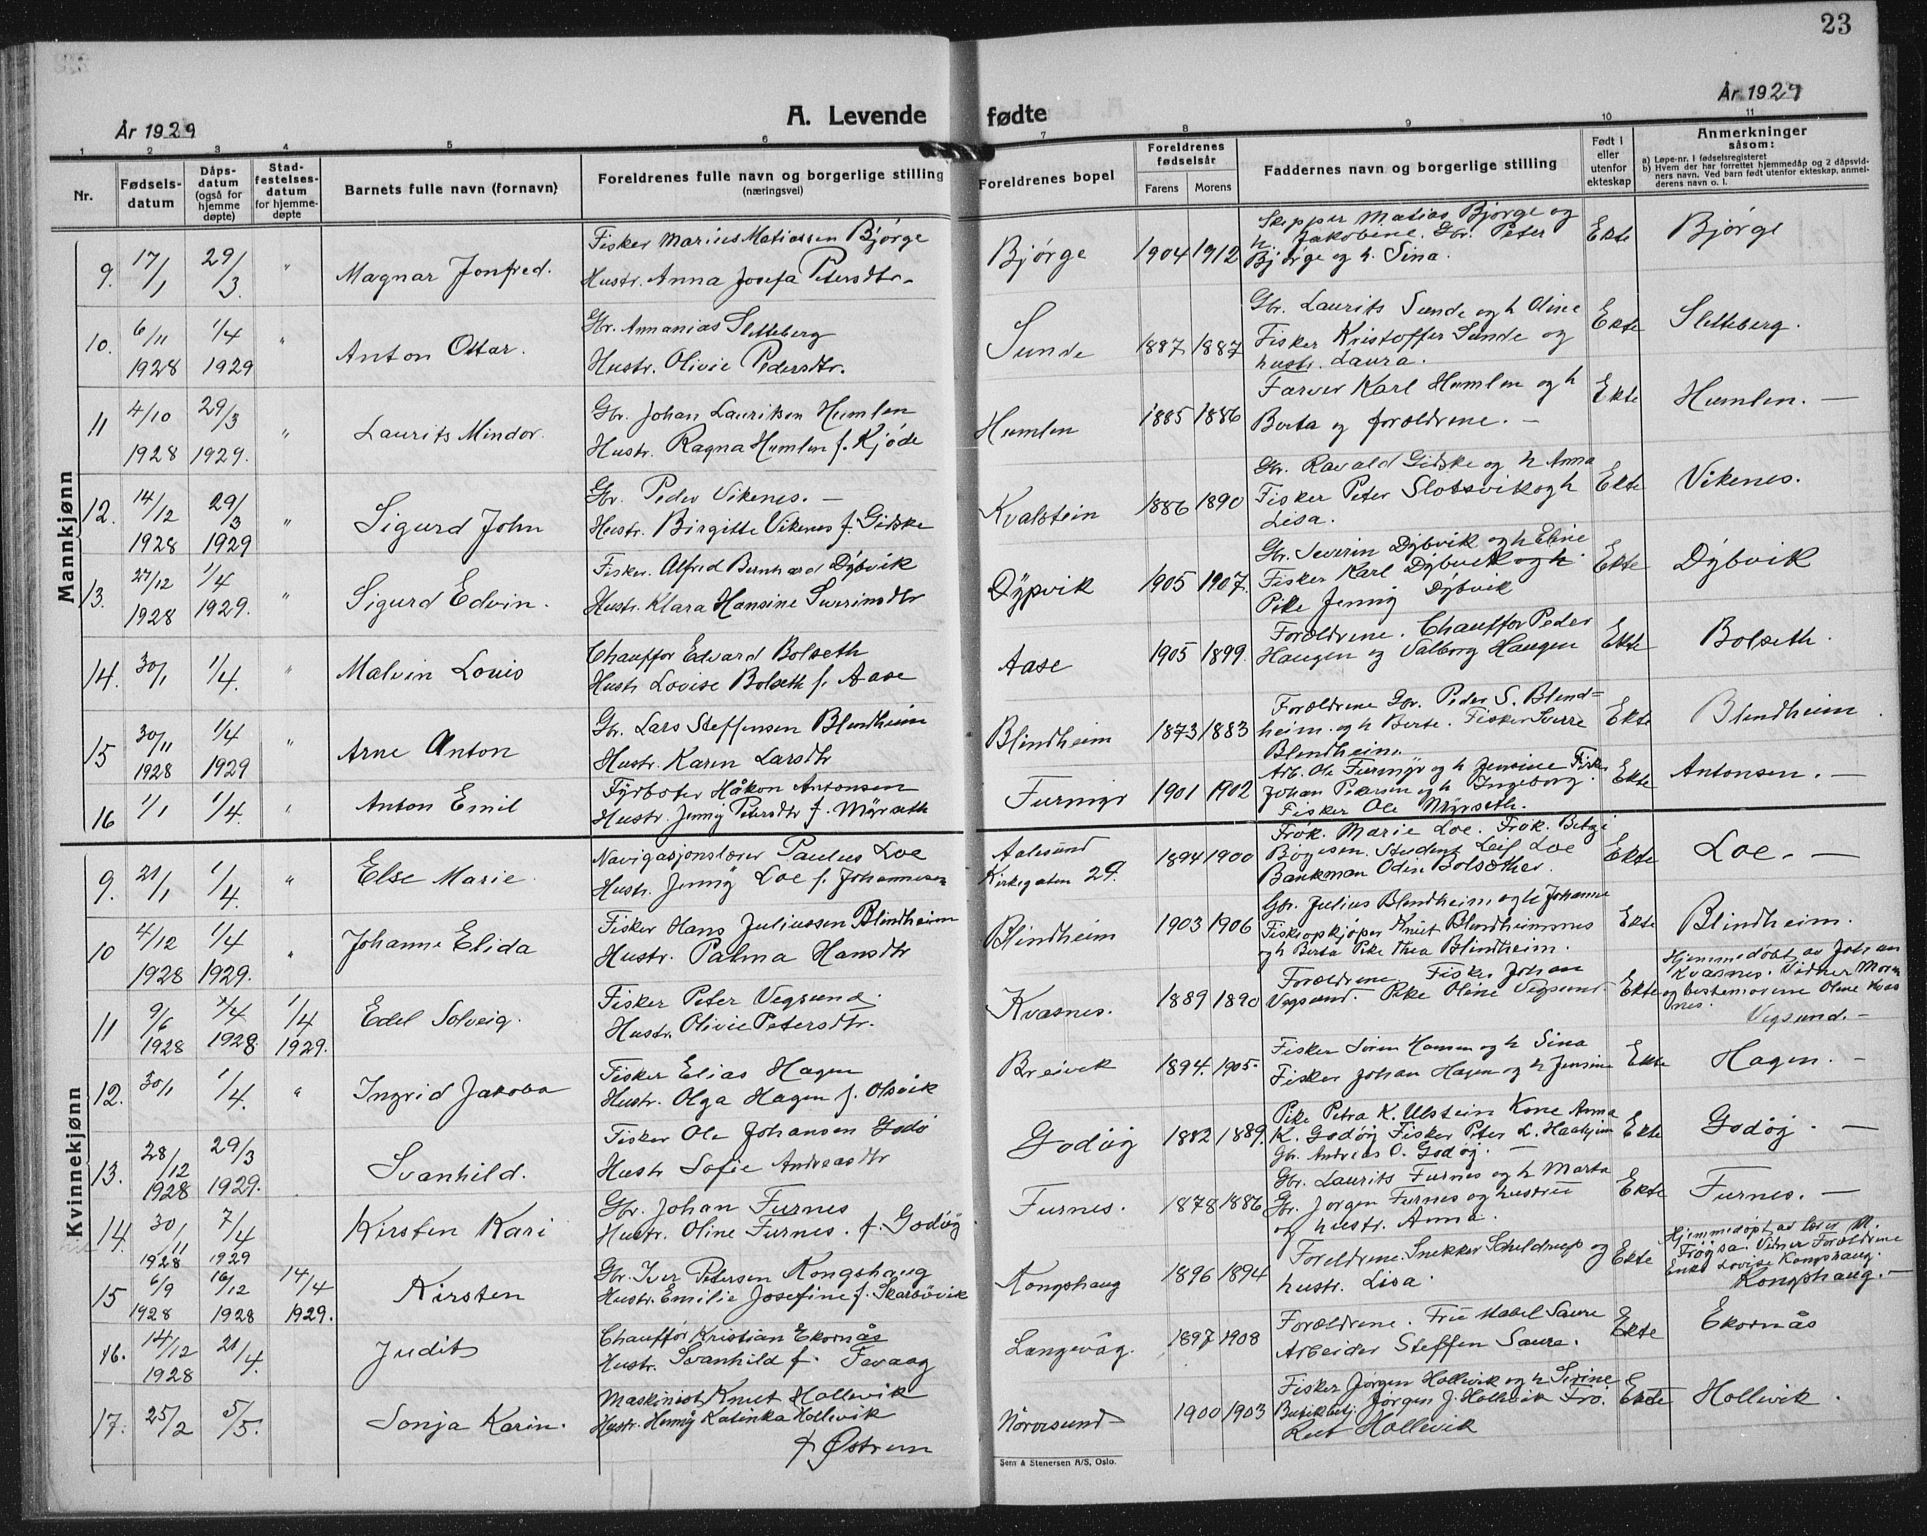 23
År 1929
A. Levende fødte
År 1929
1 2 3 4 5 6 7 8 9 10 11
Nr.
Fødsels-datum
Dåps-datum (også for hjemme døpte)
Stad-festelses-datum for hjemme-døpte
Barnets fulle navn (fornavn)
Foreldrenes fulle navn og borgerlige stilling (næringsvei)
Foreldrenes bopel
Foreldrenes fødselsår
Farens Morens
Faddernes navn og borgerlige stilling
Født i eller utenfor ekteskap
Anmerkninger såsom:
a) Løpe-nr. i fødselsregisteret
b) Hvem der har forrettet hjemmedåp og 2 dåpsvidners navn. Ved barn født utenfor ekteskap, anmelderens navn o. l.
Mannkjønn
9. 17/1 29/3 " Magnar Jonfred. Fisker Marius Matiassen Bjørge
Hustr. Anna Josefa Petersdtr. Bjørge 1904 1912
Skipper Matias Bjørge og
h. Jakobine. Gbr. Peter
Bjørge og h. Sina. Ekte Bjørge
10. 6/11 1928 1/4 1929 " Anton Ottar. Gbr. Annanias Sletteberg
Hustr. Olivie Pedersdtr. Sunde 1887 1887
Gbr. Laurits Sunde og h Oline
Fisker Kristoffer Sunde og
hustr. Laura. Ekte Sletteberg.
11 4/10 1928 29/3 1929. " Laurits Mindor. Gbr. Johan Lauritsen Humlen
Hustr. Ragna Humlen f. Kjøde Humlen 1885 1886
Farver Karl Humlen og h
Berta og forældrene. — Ekte Humlen. —
12. 14/12 1928 29/3 1929 " Sigurd John Gbr. Peder Vikenes. —
Hustr. Birgitte Vikenes f. Gidske Kvalstein 1886 1890
Gbr. Ravald Gidske og h Anna
Fisker Peter Slotsvik og h
Lisa. Ekte Vikenes.
13. 27/12 1928 1/4 1929. " Sigurd Edvin. Fisker. Alfred Bernhard Dybvik
Hustr. Klara Hansine Severinsdtr Dypvik 1905 1907.
Gbr. Severin Dybvik og h Eline
Fisker Karl Dybvik og h.
Pike Jenny Dybvik Ekte Dybvik
14. 30/1 1/4. " Malvin Louis Chauffør Edvard Bolseth
Hustr Lovise Bolseth f. Aase Aase 1905 1899.
Forældrene. Chauffør Peder
Haugen og Valborg Haugen Ekte Bolseth.
15 30/11 1928 1/4 1929 " Arne Anton Gbr. Lars Steffensen Blindheim
Hustr. Karen Larsdtr Blindheim 1873 1883
Forældrene Gbr. Peder S. Blind=
heim. og h Berte. Fisker Sverre
Blindheim Ekte Blindheim.
16 1/1 1/4. " Anton Emil Fyrbøter Håkon Antonsen
Hustr. Jenny Petersdtr f. Myrseth Furmyr 1901 1902
Arb. Ole Furmyr og h Jensine Fisker
Johan Petersen og h Ingeborg.
Fisker Ole Myrseth. Ekte Antonsen. —
Kvinnekjønn
9. 21/1 1/4. " Else Marie. Navigasjonslærer Paulus Loe
Hustr. Jenny Loe f. Johannesen Aalesund
Kirkegaten 29. 1894 1900
Frøk. Marie Loe. Frøk. Betzi
Student Leif Loe
Bankman Odin Bolsæther. Ekte Loe. —
10 4/12 1928 1/4 1929. " Johanne Elida Fisker Hans Juliussen Blindheim
Hustr. Palma Hansdtr Blindheim 1903 1906
Gbr. Julius Blindheim og h Johanne
Fiskeopkjøper Knut Blindheimsnes
og h Berta Pike Thea Blindheim. Ekte Blindheim.
11 9/6 1928 7/4 1928. 1/4 1929. Edel Solveig. Fisker Peter Vegsund.
Hustr. Olivie Petersdtr. Kvasnes. 1889 1890
Forældrene Fisker Johan
Vegsund. Pike Oline Vegsund. Ekte
Hjemmedøbt av Johan
Kvasnes. Vidner Moren
og bestemorene Oline Kvas
nes. Vegsund. —
12. 30/1 1/4. " Ingrid Jakoba Fisker Elias Hagen
Hustr. Olga Hagen f. Olsvik Breivik 1894. 1905.
Fisker Søren Hansen og h Sina
Fisker Johan Hagen og h Jensine Ekte Hagen. —
13. 28/12 1928 29/3 1929. Svanhild. Fisker Ole Johansen Godø
Hustr Sofie Andreasdtr Godøy 1882 1889.
Pike Petra K. Ulstein Kone Anna
K. Godøy Fisker Peter L.
Gbr. Andreas O. Godøy. — Ekte Godøy. —
14. 30/11 1928 7/4 1929 Kirsten Kari Gbr. Johan Furnes
Hustr. Oline Furnes. f. Godøy Furnes. 1878 1886
Gbr. Laurits Furnes og h Marta
Gbr. Jørgen Furnes og hustru
og hustr. Anna. Ekte Furnes. —
15 6/9 1928 16/12 1928 14/4 1929. Kirsten Gbr. Iver Petersen Kongshaug
Hustr. Emilie Josefine f. Skarbøvik Kongshaug 1896 1894
Foreldrene. Snekker Scheldrup og
hustr. Lisa. Ekte
Hjemmedøpt av lærer M.
Frøysa. Vidner Forældrene
Enke Lovise Kongshaug.
Kongshaug. —
16. 14/12 1928 21/4. Judit Chauffør Kristian Ekornås
Hustr. Svanhild f. Tevaag Langevåg. 1897 1908
Forældrene. Fru Mabel Saure
Arbeider Steffen Saure. Ekte Ekornås
17. 25/2 5/5. Sonja Karin. Maskinist Knut Hollevik
Hustr. Henny Katinka Hollevik
f Østrem Nørvesund 1900 1903
Fisker Jørgen Hollevik og h Sirine
Butikbetj. Jørgen J. Hollevik Frø.
Rut Hollevik Ekte Hollevik.
Sem & Stenersen A/S, Oslo.